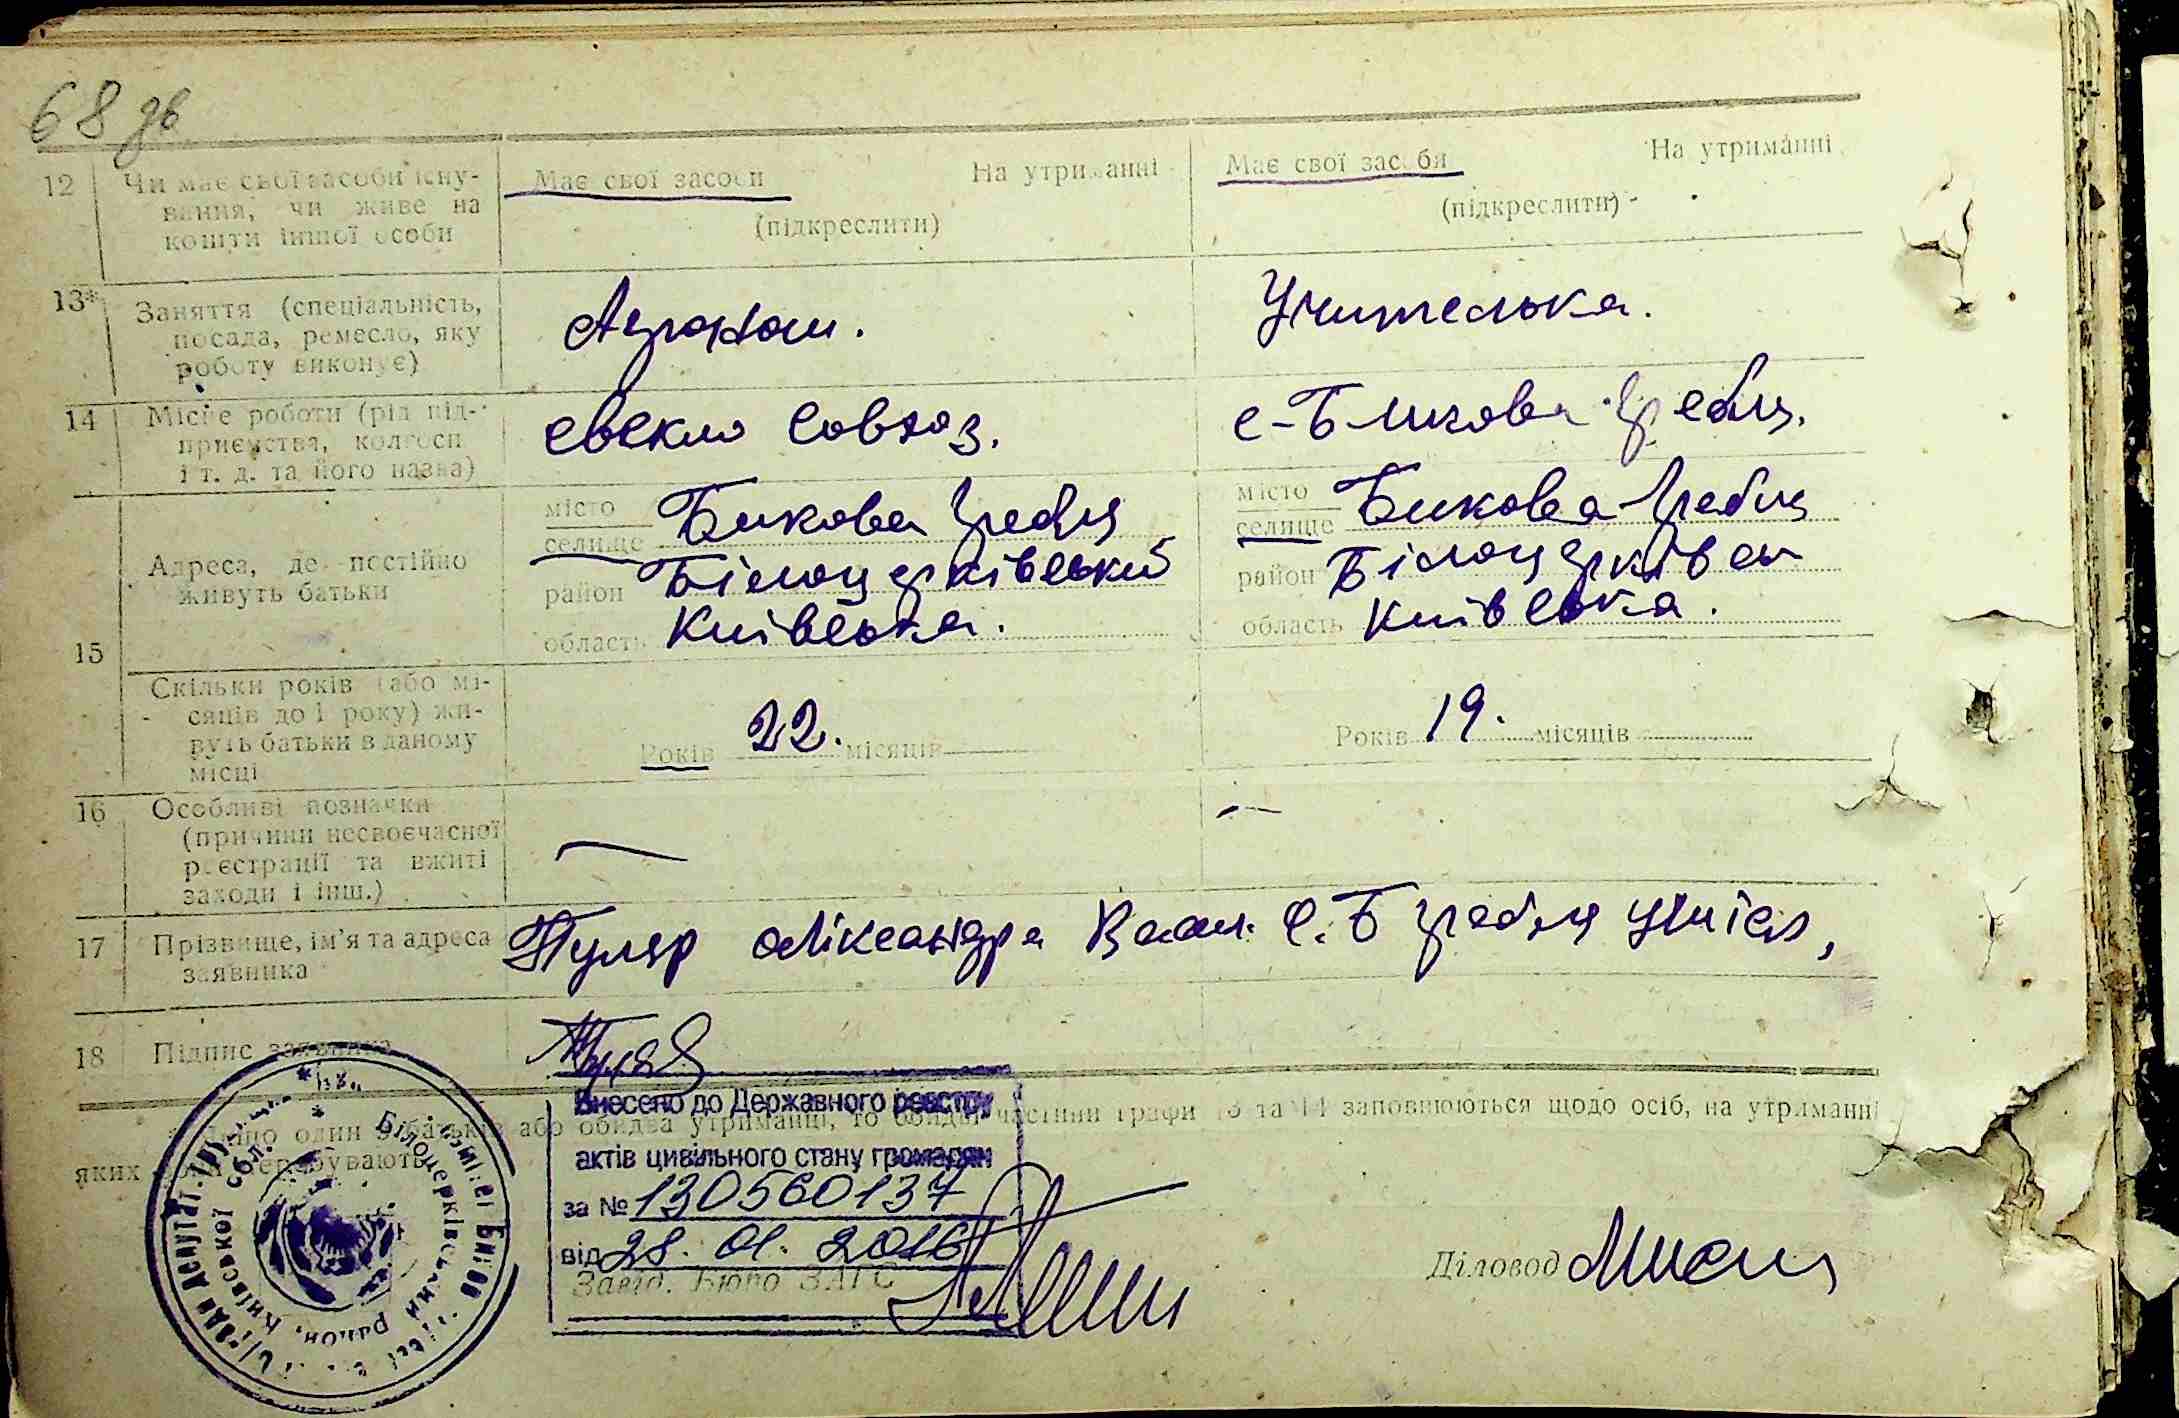 68 зв
12 Чи має свої засоби існу- Має свої засоби На утриманні Має свої засоби На утриманні
вання, чи живе на
кошти іншої особи (підкреслити) (підкреслити)
13* Заняття (спеціальність, Агроном. Учителька.
посада, ремесло, яку
роботу виконує)
14 Місце роботи (рід під- свекло совхоз. с-Бикова Гребл.
приємства, колгосп
і т. д. та його назва)
місто Бикова Гребля місто Бикова-Гребля
селище селище
15 Адреса, де постійно район Білоцерківський район Білоцерківсь
живуть батьки область Київська. область Київська.
Скільки років (або мі-
сяців до 1 року) жи-
вуть батьки в даному Років 22. місяців Років 19. місяців
місці
16 Особливі позначки — —
(причини несвоєчасної
реєстрації та вжиті
заходи і інш.)
17 Прізвище, ім'я та адреса Гуляр Аліксандра Васил. с. Б гребля
заявника
18 Підпис заявника
один з батьків або обидва утриманці, то обидві частини графи 13 та 14 заповнюються щодо осіб, на утриманні
яких вони перебувають
Внесено до Державного реєстру
актів цивільного стану громадян
за № 130560137
від 28. 01. 2016
Завід. Бюро ЗАГС
Діловод
Білоцерківський район, Київської обл.